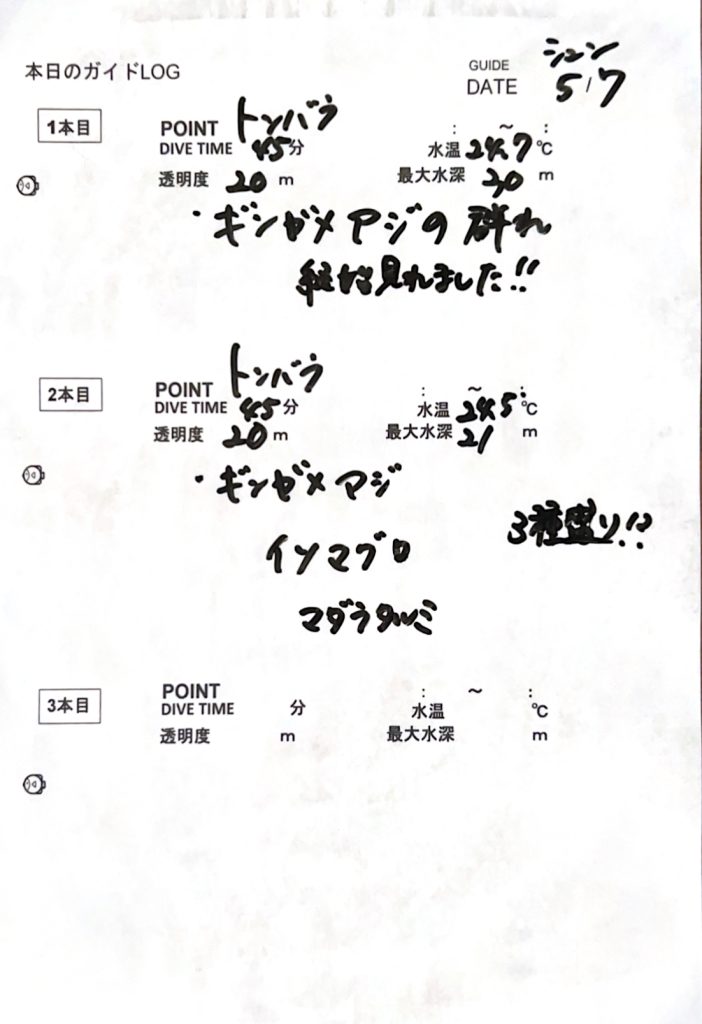 本日のガイドLOG
GUIDE シュン
DATE 5/7
1本目
POINT トンバラ : ~ :
DIVE TIME 45分 水温 24.7℃
透明度 20 m 最大水深 30 m
・ギンガメアジの群れ
見れました!!
2本目
POINT トンバラ : ~ :
DIVE TIME 45分 水温 24.5℃
透明度 20 m 最大水深 21 m
・ギンガメアジ
3種盛り!?
イソマグロ
マダラタルミ
3本目
POINT : ~ :
DIVE TIME 分 水温 ℃
透明度 m 最大水深 m